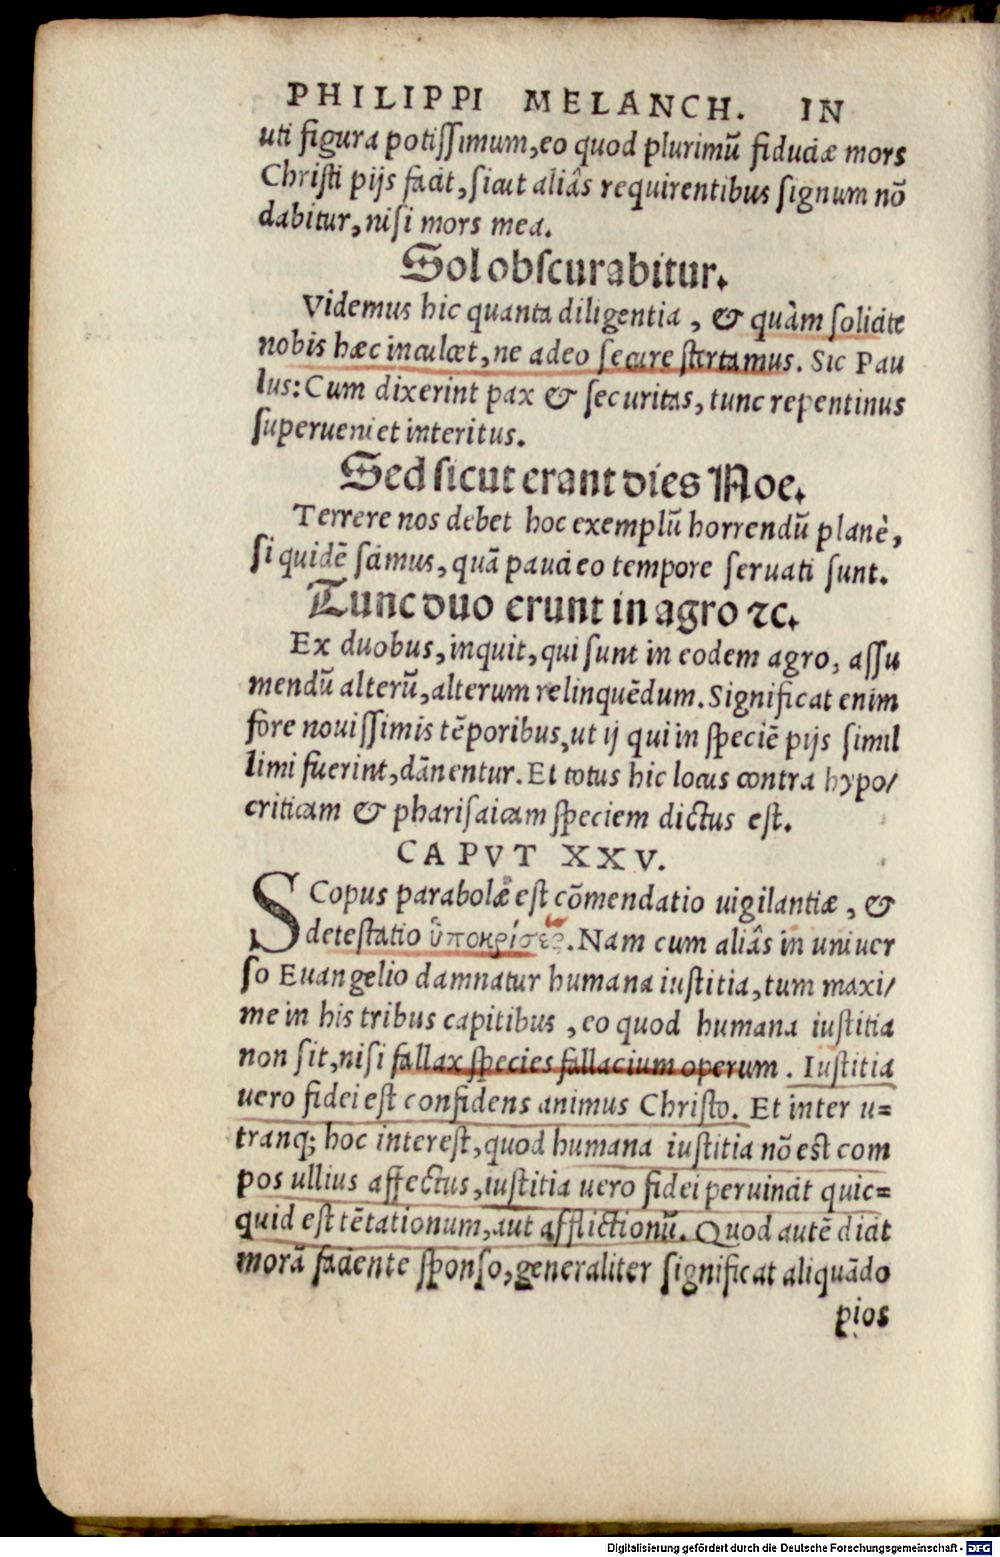 PHILIPPI MELANCH. IN
uti figura potiſſimum, eo quod plurimū fiduciæ mors
Chriſti pijs facit, ſicut aliâs requirentibus ſignum nō
dabitur, niſi mors mea.
Sol obſcurabitur.
Videmus hic quanta diligentia, & quàm ſolicite
nobis hæc inculcet, ne adeo ſecure ſtertamus. Sic Pau
lus: Cum dixerint pax & ſecuritas, tunc repentinus
ſuperueniet interitus.
Sed ſicut erant dies Noe.
Terrere nos debet hoc exemplū horrendū planè,
ſi quidē ſcimus, quā pauci eo tempore ſeruati ſunt.
Tunc duo erunt in agro ⁊c.
Ex duobus, inquit, qui ſunt in eodem agro, aſſu
mendū alterū, alterum relinquēdum. Significat enim
fore nouiſſimis tēporibus, ut ij qui in ſpeciē pijs ſimil
limi fuerint, dānentur. Et totus hic locus contra hypo/
criticam & phariſaicam ſpeciem dictus eſt.
CAPVT XXV.
SCopus parabolæ eſt cōmendatio uigilantiæ, &
deteſtatio ὑποκρίσεως. Nam cum aliâs in uniuer
ſo Euangelio damnatur humana iuſtitia, tum maxi/
me in his tribus capitibus, eo quod humana iuſtitia
non ſit, niſi fallax ſpecies fallacium operum. Iuſtitia
uero fidei eſt confidens animus Chriſto. Et inter u=
tranq; hoc intereſt, quod humana iuſtitia nō eſt com
pos ullius affectus, iuſtitia uero fidei peruincit quic=
quid eſt tētationum, aut afflictionū. Quod autē dicit
morā faciente ſponſo, generaliter ſignificat aliquādo
pios
Digitalisierung gefördert durch die Deutsche Forschungsgemeinschaft - DFG